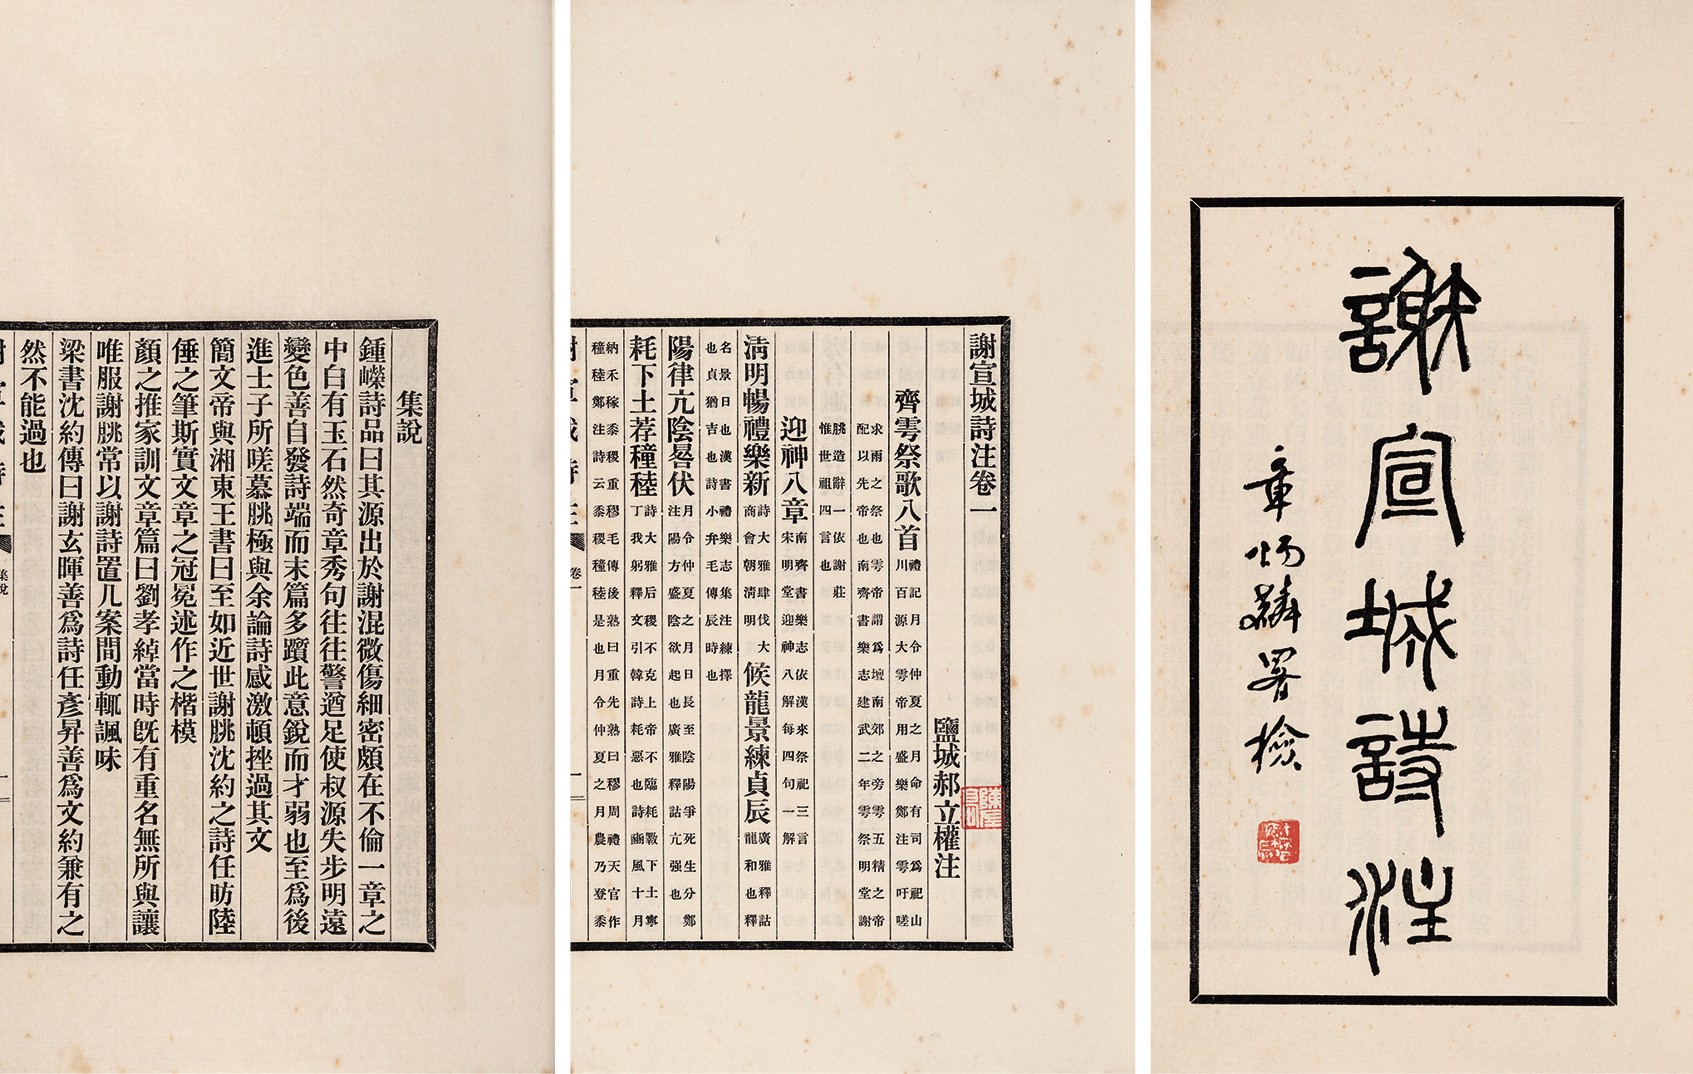 謝宣城詩注
章炳麟署檢
謝宣城詩注卷一
鹽城郝立權注
齊雩祭歌八首禮記月令仲夏之月命有司爲祀山川百源大雩帝用盛樂鄭注雩吁嗟
求雨之祭也雩帝謂爲壇南郊之旁雩五精之帝配以先帝也南齊書樂志建武二年雩祭明堂謝
朓造辭一依謝莊惟世祖四言也
迎神八章南齊書樂志依漢來祭祀三言宋明堂迎神八解每四句一解
淸明暢禮樂新詩大雅肆伐大商會朝淸明候龍景練貞辰廣雅釋詁龍和也釋
名景日也漢書禮樂志集注練擇也貞猶吉也詩小弁毛傳辰時也
陽律亢陰晷伏月令仲夏之月日長至陰陽爭死生分鄭注陽方盛陰欲起也廣雅釋詁亢强也
耗下土荐穜稑詩大雅后稷不克上帝不臨耗斁下土寧丁我躬釋文引韓詩耗惡也詩豳風十月
納禾稼黍稷重穋毛傳後熟曰重先熟曰穋周禮天官作穜稑鄭注詩云黍稷穜稑是也月令仲夏之月農乃登黍
卷一
一
集說
鍾嶸詩品曰其源出於謝混微傷細密頗在不倫一章之
中自有玉石然奇章秀句往往警遒足使叔源失步明遠
變色善自發詩端而末篇多躓此意銳而才弱也至爲後
進士子所嗟慕朓極與余論詩感激頓挫過其文
簡文帝與湘東王書曰至如近世謝朓沈約之詩任昉陸
倕之筆斯實文章之冠冕述作之楷模
顏之推家訓文章篇曰劉孝綽當時旣有重名無所與讓
唯服謝朓常以謝詩置几案間動輒諷味
梁書沈約傳曰謝玄暉善爲詩任彥昇善爲文約兼有之
然不能過也
集說
一